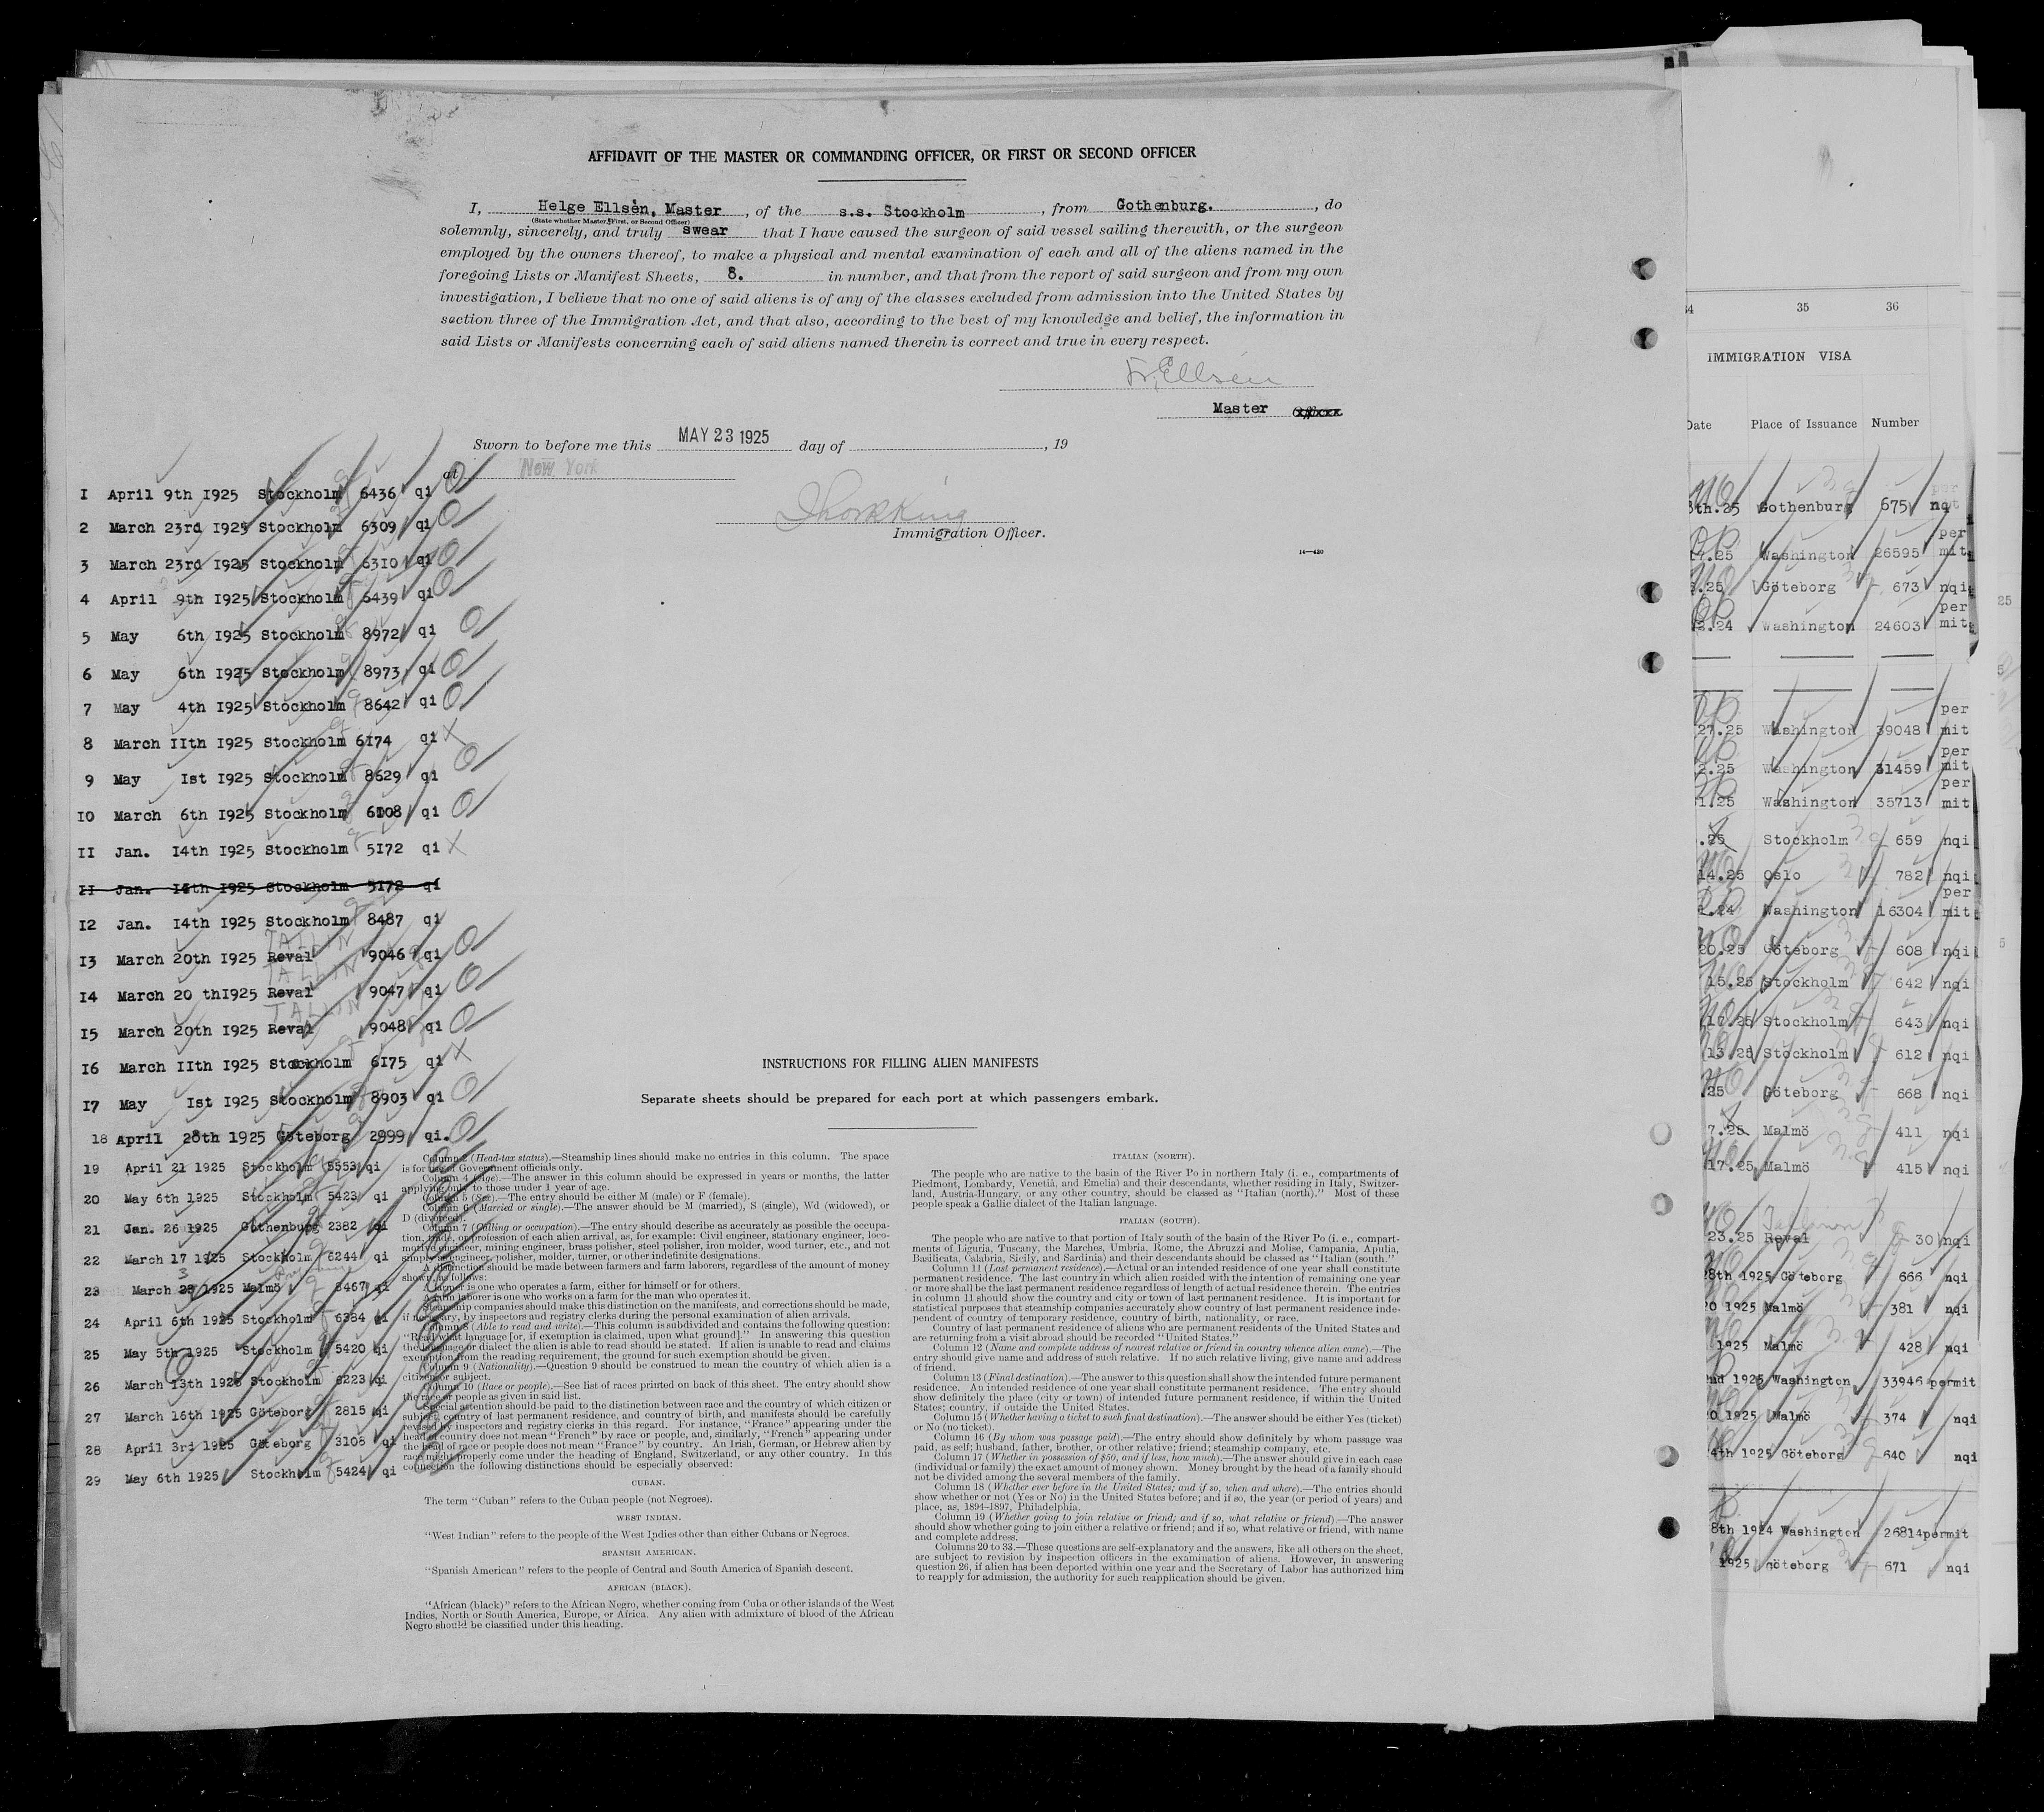 AFFIDAVIT OF THE MASTER OR COMMANDING OFFICER, OR FIRST OR SECOND OFFICER
I, Helge Ellsèn, Master, of the s.s. Stockholm, from Gothenburg., do
(State whether Master, First, or Second Officer)
solemnly, sincerely, and truly swear that I have caused the surgeon of said vessel sailing therewith, or the surgeon
employed by the owners thereof, to make a physical and mental examination of each and all of the aliens named in the
foregoing Lists or Manifest Sheets, 8. in number, and that from the report of said surgeon and from my own
investigation, I believe that no one of said aliens is of any of the classes excluded from admission into the United States by
section three of the Immigration Act, and that also, according to the best of my knowledge and belief, the information in
said Lists or Manifests concerning each of said aliens named therein is correct and true in every respect.
Ellsén
Master
Sworn to before me this MAY 23 1925 day of , 19
at New York
Immigration Officer.
14—430
1 April 9th 1925 Stockholm 6436 qi
2 March 23rd 1925 Stockholm 6309 qi
3 March 23rd 1925 Stockholm 6310 qi
4 April 9th 1925 Stockholm 6439 qi
5 May 6th 1925 Stockholm 8972 qi
6 May 6th 1925 Stockholm 8973 qi
7 May 4th 1925 Stockholm 8642 qi
8 March 11th 1925 Stockholm 6174 qi X
9 May 1st 1925 Stockholm 8629 qi
10 March 6th 1925 Stockholm 6108 qi
11 Jan. 14th 1925 Stockholm 5172 qi X
11 Jan. 14th 1925 Stockholm 5172 qi
12 Jan. 14th 1925 Stockholm 8487 qi
TALLIN
13 March 20th 1925 Reval 9046 qi
TALLIN
14 March 20 th1925 Reval 9047 qi
TALLIN
15 March 20th 1925 Reval 9048 qi
16 March 11th 1925 Stockholm 6175 qi X
17 May 1st 1925 Stockholm 8903 qi
18 April 28th 1925 Göteborg 2999 qi.
19 April 21 1925 Stockholm 5553 qi
20 May 6th 1925 Stockholm 5423 qi
21 Jan. 26 1925 Gothenburg 2382 qi
22 March 17 1925 Stockholm 6244 qi
23 March 1925 Malmö 8467 qi
24 April 6th 1925 Stockholm 6384 qi
25 May 5th 1925 Stockholm 5420 qi
26 March 13th 1925 Stockholm 6223 qi
27 March 16th 1925 Göteborg 2815 qi
28 April 3rd 1925 Göteborg 3108 qi
29 May 6th 1925 Stockholm 5424 qi
INSTRUCTIONS FOR FILLING ALIEN MANIFESTS
Separate sheets should be prepared for each port at which passengers embark.
Column 2 (Head-tax status).—Steamship lines should make no entries in this column. The space
is for use of Government officials only.
Column 4 (Age).—The answer in this column should be expressed in years or months, the latter
applying only to those under 1 year of age.
Column 5 (Sex).—The entry should be either M (male) or F (female).
Column 6 (Married or single).—The answer should be M (married), S (single), Wd (widowed), or
D (divorced).
Column 7 (Calling or occupation).—The entry should describe as accurately as possible the occupa-
tion, trade, or profession of each alien arrival, as, for example: Civil engineer, stationary engineer, loco-
motive engineer, mining engineer, brass polisher, steel polisher, iron molder, wood turner, etc., and not
simply engineer, polisher, molder, turner, or other indefinite designations.
A distinction should be made between farmers and farm laborers, regardless of the amount of money
shown, as follows:
A farmer is one who operates a farm, either for himself or for others.
A farm laborer is one who works on a farm for the man who operates it.
Steamship companies should make this distinction on the manifests, and corrections should be made,
if necessary, by inspectors and registry clerks during the personal examination of alien arrivals.
Column 8 (Able to read and write).—This column is subdivided and contains the following question:
"Read what language [or, if exemption is claimed, upon what ground]." In answering this question
the language or dialect the alien is able to read should be stated. If alien is unable to read and claims
exemption from the reading requirement, the ground for such exemption should be given.
Column 9 (Nationality).—Question 9 should be construed to mean the country of which alien is a
citizen or subject.
Column 10 (Race or people).—See list of races printed on back of this sheet. The entry should show
the race or people as given in said list.
Special attention should be paid to the distinction between race and the country of which citizen or
subject, country of last permanent residence, and country of birth, and manifests should be carefully
revised by inspectors and registry clerks in this regard. For instance, "France" appearing under the
head of country does not mean "French" by race or people, and, similarly, "French" appearing under
the head of race or people does not mean "France" by country. An Irish, German, or Hebrew alien by
race might properly come under the heading of England, Switzerland, or any other country. In this
connection the following distinctions should be especially observed:
CUBAN.
The term "Cuban" refers to the Cuban people (not Negroes).
WEST INDIAN.
"West Indian" refers to the people of the West Indies other than either Cubans or Negroes.
SPANISH AMERICAN.
"Spanish American" refers to the people of Central and South America of Spanish descent.
AFRICAN (BLACK).
"African (black)" refers to the African Negro, whether coming from Cuba or other islands of the West
Indies, North or South America, Europe, or Africa. Any alien with admixture of blood of the African
Negro should be classified under this heading.
ITALIAN (NORTH).
The people who are native to the basin of the River Po in northern Italy (i. e., compartments of
Piedmont, Lombardy, Venetia, and Emelia) and their descendants, whether residing in Italy, Switzer-
land, Austria-Hungary, or any other country, should be classed as "Italian (north)." Most of these
people speak a Gallic dialect of the Italian language.
ITALIAN (SOUTH).
The people who are native to that portion of Italy south of the basin of the River Po (i. e., compart-
ments of Liguria, Tuscany, the Marches, Umbria, Rome, the Abruzzi and Molise, Campania, Apulia,
Basilicata, Calabria, Sicily, and Sardinia) and their descendants should be classed as "Italian (south."
Column 11 (Last permanent residence).—Actual or an intended residence of one year shall constitute
permanent residence. The last country in which alien resided with the intention of remaining one year
or more shall be the last permanent residence regardless of length of actual residence therein. The entries
in column 11 should show the country and city or town of last permanent residence. It is important for
statistical purposes that steamship companies accurately show country of last permanent residence inde-
pendent of country of temporary residence, country of birth, nationality, or race.
Country of last permanent residence of aliens who are permanent residents of the United States and
are returning from a visit abroad should be recorded "United States."
Column 12 (Name and complete address of nearest relative or friend in country whence alien came).—The
entry should give name and address of such relative. If no such relative living, give name and address
of friend.
Column 13 (Final destination).—The answer to this question shall show the intended future permanent
residence. An intended residence of one year shall constitute permanent residence. The entry should
show definitely the place (city or town) of intended future permanent residence, if within the United
States; country, if outside the United States.
Column 15 (Whether having a ticket to such final destination).—The answer should be either Yes (ticket)
or No (no ticket).
Column 16 (By whom was passage paid).—The entry should show definitely by whom passage was
paid, as self; husband, father, brother, or other relative; friend; steamship company, etc.
Column 17 (Whether in possession of $50, and if less, how much).—The answer should give in each case
(individual or family) the exact amount of money shown. Money brought by the head of a family should
not be divided among the several members of the family.
Column 18 (Whether ever before in the United States; and if so, when and where).—The entries should
show whether or not (Yes or No) in the United States before; and if so, the year (or period of years) and
place, as, 1894-1897, Philadelphia.
Column 19 (Whether going to join relative or friend; and if so, what relative or friend).—The answer
should show whether going to join either a relative or friend; and if so, what relative or friend, with name
and complete address.
Columns 20 to 33.—These questions are self-explanatory and the answers, like all others on the sheet,
are subject to revision by inspection officers in the examination of aliens. However, in answering
question 26, if alien has been deported within one year and the Secretary of Labor has authorized him
to reapply for admission, the authority for such reapplication should be given.
34 35 36
IMMIGRATION VISA
Date Place of Issuance Number
8th.25 Gothenburg 675 nqi
.25 Washington 26595 permit
.25 Göteborg 673 nqi
.24 Washington 24603 permit
27.25 Washington 39048 permit
2.25 Washington 31459 permit
1.25 Washington 35713 permit
.25 Stockholm 659 nqi
14.25 Oslo 782 nqi
.24 Washington 16304 permit
20.25 Göteborg 608 nqi
15.25 Stockholm 642 nqi
17.25 Stockholm 643 nqi
13.25 Stockholm 612 nqi
25 Göteborg 668 nqi
7.25 Malmö 411 nqi
17.25 Malmö 415 nqi
23.25 Reval 30 nqi
8th 1925 Göteborg 666 nqi
0 1925 Malmö 381 nqi
1925 Malmö 428 nqi
2nd 1925 Washington 33946 permit
0 1925 Malmö 374 nqi
4th 1925 Göteborg 640 nqi
8th 1924 Washington 26814permit
1925 Göteborg 671 nqi